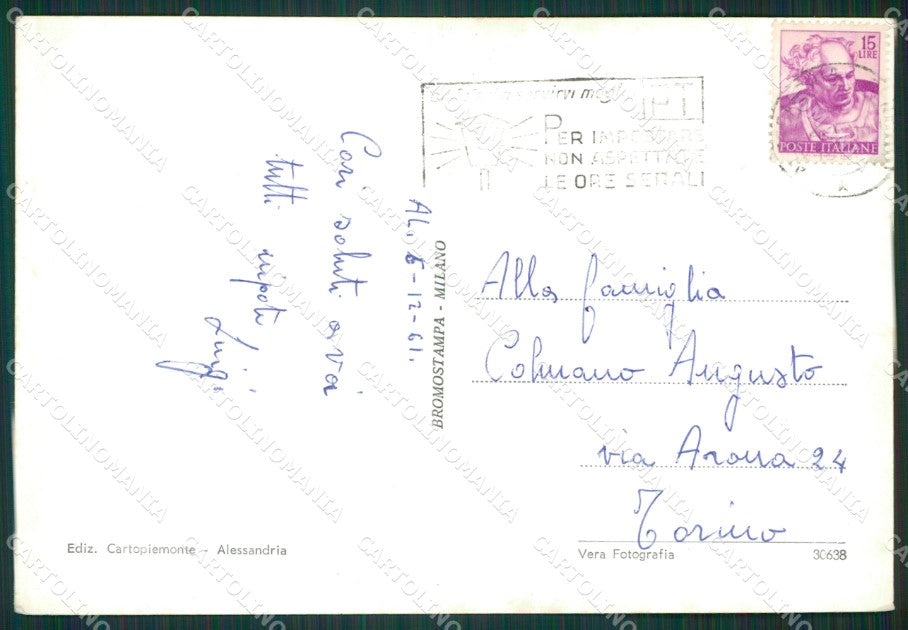 15
LIRE
POSTE ITALIANE
servirvi meglio
PT
PER IMPOSTARE
NON ASPETTATE
LE ORE SERALI
AL. 6-12-61.
Cari saluti a voi
tutti nipoti
Luigi
BROMOSTAMPA - MILANO
Alla famiglia
Colmano Augusto
via Arona 24
Torino
Ediz. Cartopiemonte - Alessandria
Vera Fotografia
30638
CARTOLINOMANIA